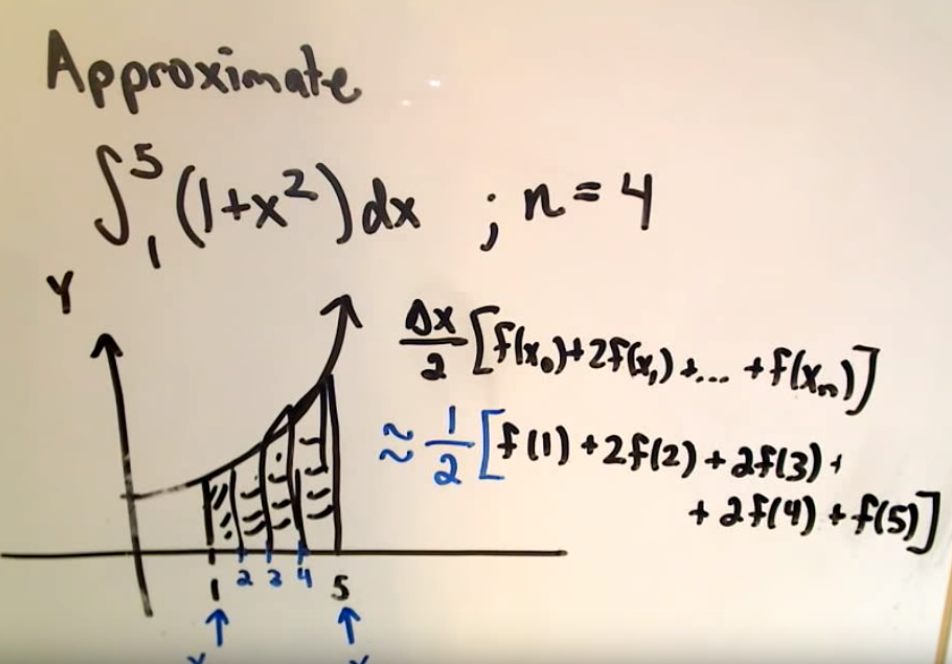 Approximate
∫₁⁵ (1+x²) dx ; n = 4
Y
Δx/2 [f(x₀)+2f(x₁)+... +f(xₙ)]
≈ 1/2 [f(1)+2f(2)+2f(3)+
+2f(4)+f(5)]
1 2 3 4 5